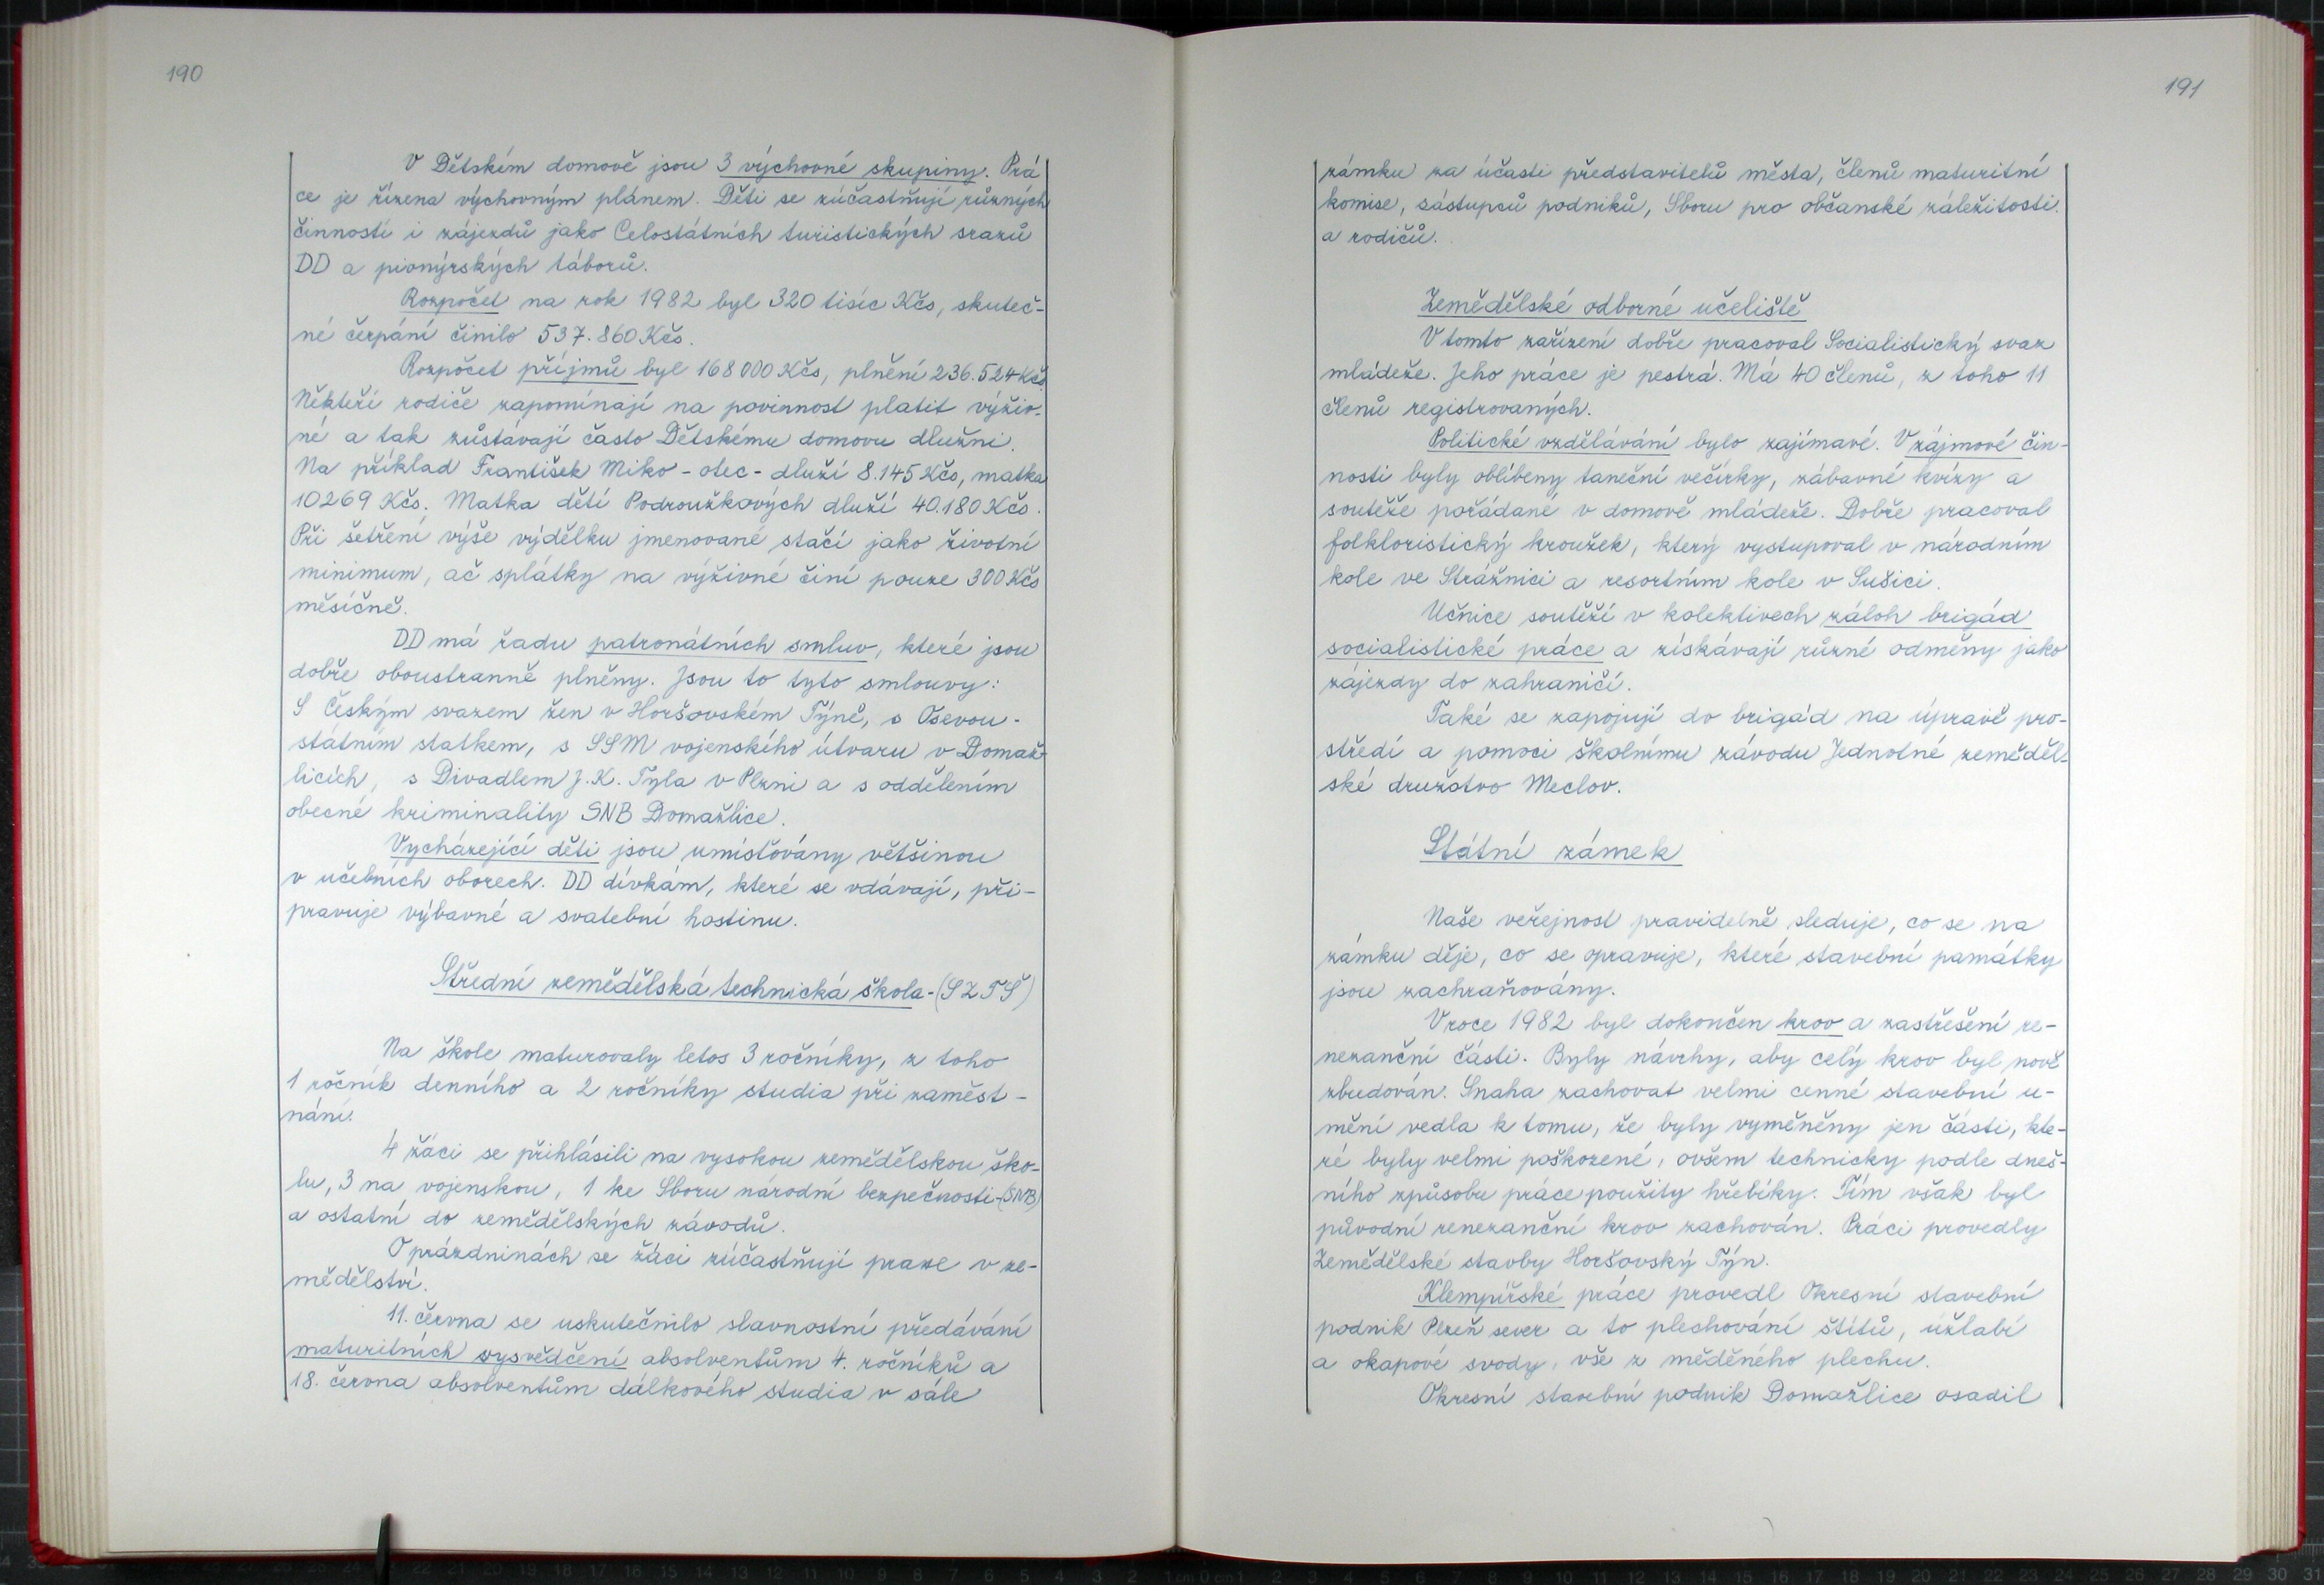 190
V Dětském domově jsou 3 výchovné skupiny. Prá
ce je řízena výchovným plánem. Děti se zúčastňují různých
činností i zájezdů jako Celostátních turistických srazů
DD a pionýrských táborů.
Rozpočet na rok 1982 byl 320 tisíc Kčs, skuteč-
né čerpání činilo 537.860 Kčs.
Rozpočet příjmů byl 168 000 Kčs, plnění 236.524 Kčs
Někteří rodiče zapomínají na povinnost platit výživ-
né a tak zůstávají často Dětskému domovu dlužni.
Na příklad František Miko - otec - dluží 8.145 Kčs, matka
10269 Kčs. Matka dětí Podroužkových dluží 40.180 Kčs.
Při šetření výše výdělku jmenované stačí jako životní
minimum, ač splátky na výživné činí pouze 300 Kčs
měsíčně.
DD má řadu patronátních smluv, které jsou
dobře oboustranně plněny. Jsou to tyto smlouvy:
S Českým svazem žen v Horšovském Týně, s Osevou-
státním statkem, s SSM vojenského útvaru v Domaž-
licích, s Divadlem J. K. Tyla v Plzni a s oddělením
obecné kriminality SNB Domažlice.
Vycházející děti jsou umísťovány většinou
v učebních oborech. DD dívkám, které se vdávají, při-
pravuje výbavné a svatební hostinu.
Střední zemědělská technická škola - (SZTŠ)
Na škole maturovaly letos 3 ročníky, z toho
1 ročník denního a 2 ročníky studia při zaměst-
nání.
4 žáci se přihlásili na vysokou zemědělskou ško-
lu, 3 na vojenskou, 1 ke Sboru národní bezpečnosti-(SNB)
a ostatní do zemědělských závodů.
O prázdninách se žáci zúčastňují praxe v ze-
mědělství.
11. června se uskutečnilo slavnostní předávání
maturitních vysvědčení absolventům 4. ročníků a
18. června absolventům dálkového studia v sále
191
zámku za účasti představitelů města, členů maturitní
komise, zástupců podniků, Sboru pro občanské záležitosti
a rodičů.
Zemědělské odborné učeliště
V tomto zařízení dobře pracoval Socialistický svaz
mládeže. Jeho práce je pestrá. Má 40 členů, z toho 11
členů registrovaných.
Politické vzdělávání bylo zajímavé. V zájmové čin-
nosti byly oblíbeny taneční večírky, zábavné kvízy a
soutěže pořádané v domově mládeže. Dobře pracoval
folkloristický kroužek, který vystupoval v národním
kole ve Strážnici a resortním kole v Sušici.
Učnice soutěží v kolektivech záloh brigád
socialistické práce a získávají různé odměny jako
zájezdy do zahraničí.
Také se zapojují do brigád na úpravě pro-
středí a pomoci školnímu závodu Jednotné zeměděl-
ské družstvo Meclov.
Státní zámek
Naše veřejnost pravidelně sleduje, co se na
zámku děje, co se opravuje, které stavební památky
jsou zachraňovány.
V roce 1982 byl dokončen krov a zastřešení re-
nezanční části. Byly návrhy, aby celý krov byl nově
zbudován. Snaha zachovat velmi cenné stavební u-
mění vedla k tomu, že byly vyměněny jen části, kte-
ré byly velmi poškozené, ovšem technicky podle dneš-
ního způsobu práce použity hřebíky. Tím však byl
původní renezanční krov zachován. Práci provedly
Zemědělské stavby Horšovský Týn.
Klempířské práce provedl Okresní stavební
podnik Plzeň sever a to plechování štítů, úžlabí
a okapové svody, vše z měděného plechu.
Okresní stavební podnik Domažlice osadil